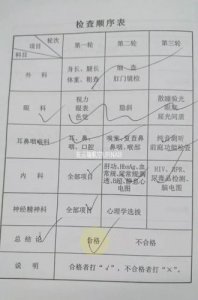 检查顺序表
轮次
项目
科目
第一轮
第二轮
第三轮
外科
身长、腿长
体重、粗查
细查
肛门镜检
眼科
视力
眼表
色觉
隐斜
散瞳验光
眼底
屈光间质
耳鼻咽喉科
耳、鼻、
咽、口腔
嗅觉、复查鼻
鼻咽、喉部
纯音测听
前庭功能检查
内科
全部项目
肝功、HbsAg、血
常规、尿常规测
透、B超、静息心
电图
HIV、RPR、
尿毒品检测、
脑电图
神经精神科
全部项目
心理学选拔
总结论
合格
不合格
说明
合格者打“√”，不合格者打“×”。